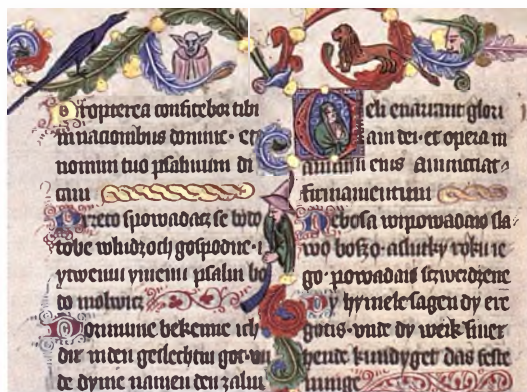 Propterea confitebor tibi
in nacionibus domine · et
nomini tuo psalmum di
cam
Przeto spowadacz se bødø
tobe wludzoch gospodne · i
ytwemu ymenu psalm bø
dø molwicz
Dorumme bekenne ich
dir in den geslechtin got · vn
de dyme namen den zalm
Celi enarrant glori
am dei · et opera m
anuum eius annunciat
firmamentum
Nebosa wipowadaiø sla
wø boszø · a skutky røku ie
go · powadaiø sczwerdzene
Dy hymele sagen dy ere
gotis · vnde dy werk siner
hende kundyget das feste
nunge